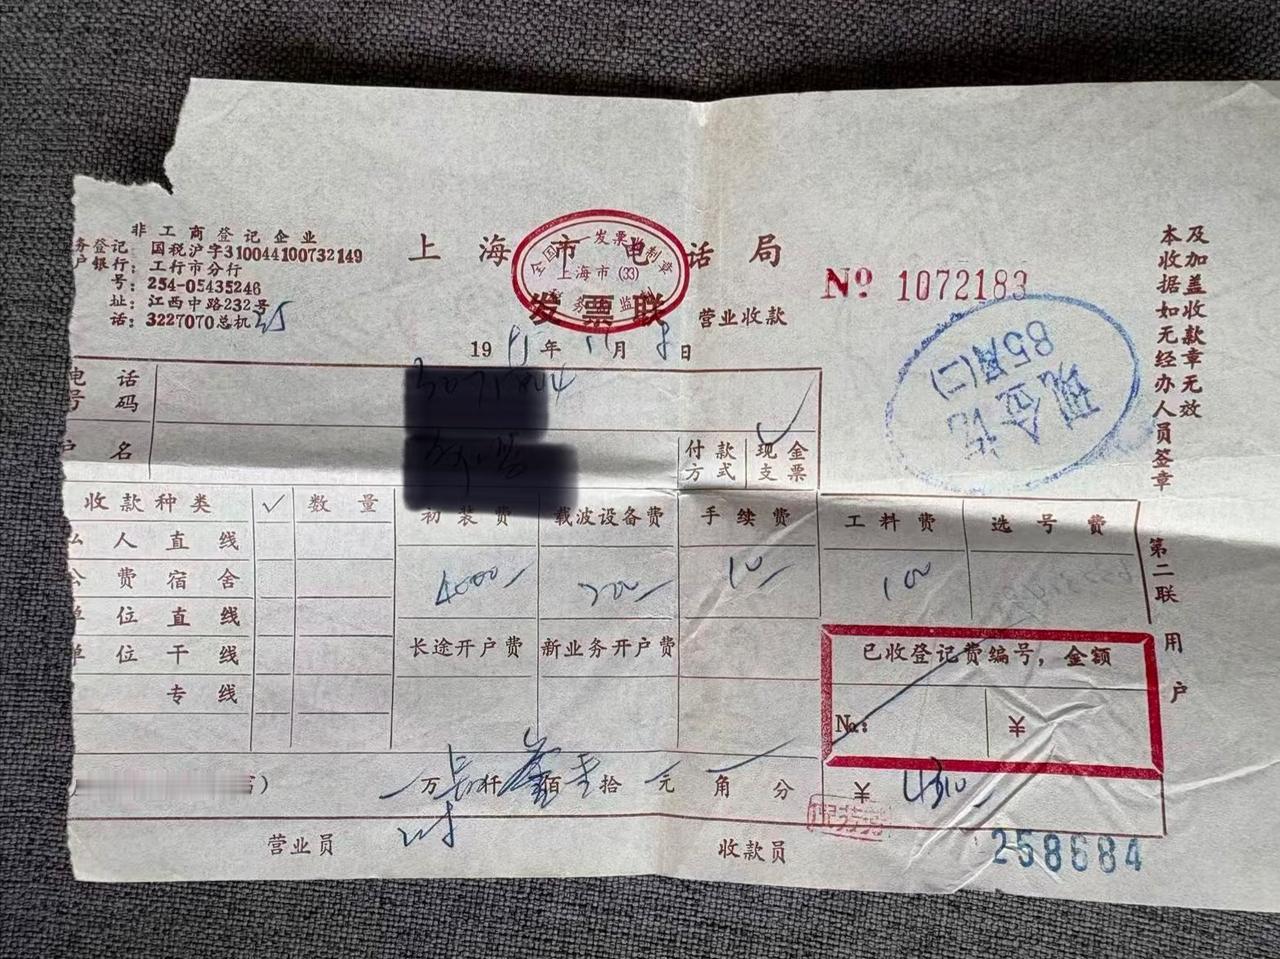 非工商登记企业
务登记 国税沪字310044100732149
户银行：工行市分行
号：254-05435246
址：江西中路232号
话：3227070总机
上海市电话局
全国统一发票监制章
上海市(33)
税务局监制
发票联 营业收款
№ 1072183
19 年 11月 8日
现金讫
85局(二)
本收据如无经办人员签章
及加盖收款章无效
电话号码
户名
付款方式 现金支票 ✓
收款种类 ✓ 数量 初装费 载波设备费 手续费 工料费 选号费
私人直线
公费宿舍 4000 200 10 100
单位直线
单位干线 长途开户费 新业务开户费
专线
已收登记费编号，金额
№: ¥
第二联 用户
万 肆仟 叁佰 壹拾 元 角 分 ¥ 4310
营业员 收款员
258684